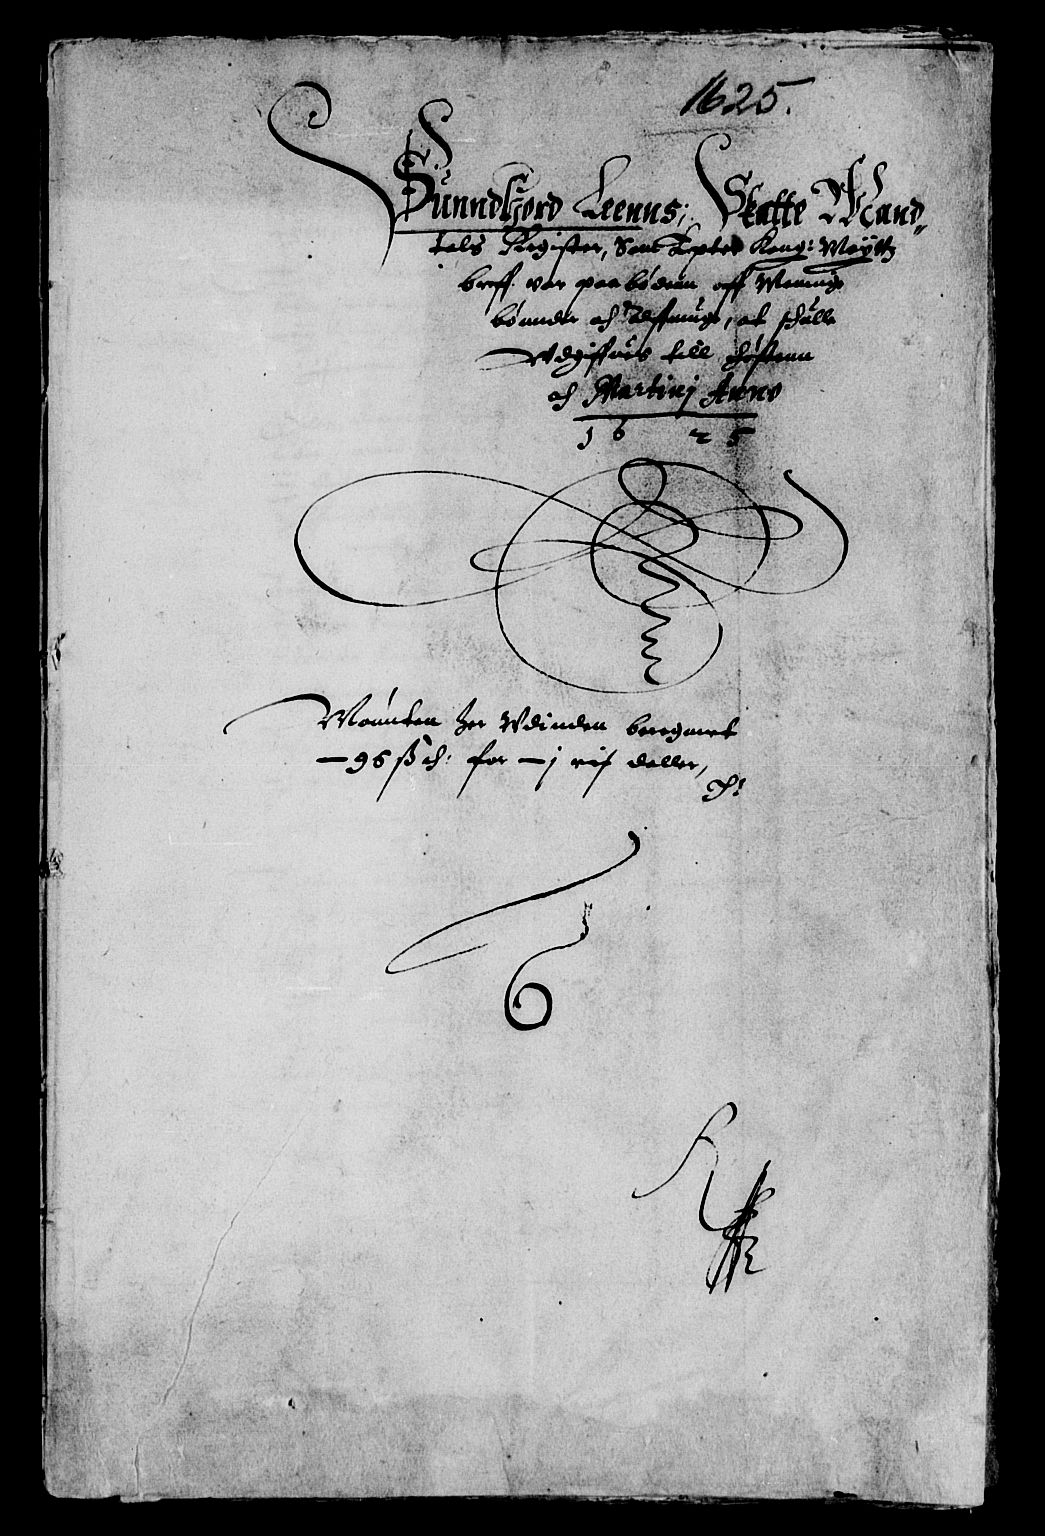 1625.
Sunndfjord Leenns; Skatte Mand
tals Register, Som Epter Kong: Maÿtz
breff. var paabödenn aff Menige
bönnder och Ödssmend, at schulle
Vdgiffuis till
och Martinj Anno
1625
Mönten her Vdinden beregnet
— 96 ß d: for — j rix daller,